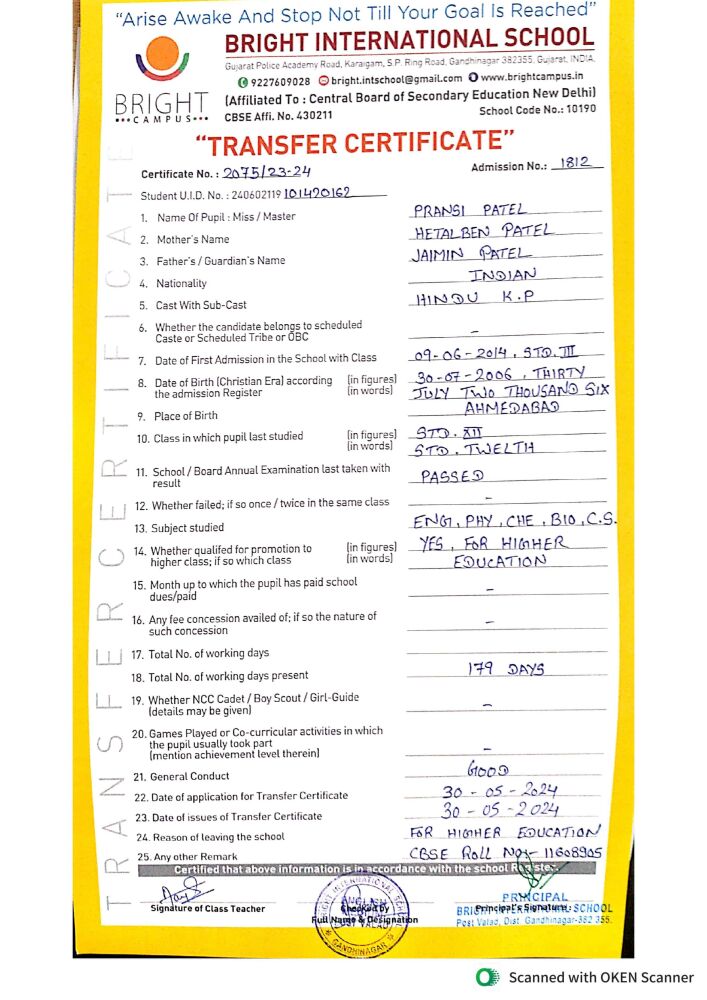 “Arise Awake And Stop Not Till Your Goal Is Reached”
BRIGHT
•••CAMPUS•••
BRIGHT INTERNATIONAL SCHOOL
Gujarat Police Academy Road, Karaigam, S.P. Ring Road, Gandhinagar 382355, Gujarat, INDIA.
9227609028 bright.intschool@gmail.com www.brightcampus.in
(Affiliated To : Central Board of Secondary Education New Delhi)
CBSE Affi. No. 430211 School Code No.: 10190
“TRANSFER CERTIFICATE”
Certificate No. : 2075/23-24 Admission No.: 1812
Student U.I.D. No. : 240602119 101420162
1. Name Of Pupil : Miss / Master PRANSI PATEL
2. Mother's Name HETALBEN PATEL
3. Father's / Guardian's Name JAIMIN PATEL
4. Nationality INDIAN
5. Cast With Sub-Cast HINDU K.P
6. Whether the candidate belongs to scheduled
Caste or Scheduled Tribe or OBC -
7. Date of First Admission in the School with Class 09-06-2014, STD. III
8. Date of Birth (Christian Era) according (in figures) 30-07-2006, THIRTY
the admission Register (in words) JULY TWO THOUSAND SIX
9. Place of Birth AHMEDABAD
10. Class in which pupil last studied (in figures) STD. XII
(in words) STD. TWELTH
11. School / Board Annual Examination last taken with
result PASSED
12. Whether failed; if so once / twice in the same class -
13. Subject studied ENG, PHY, CHE, BIO, C.S.
14. Whether qualifed for promotion to (in figures) YES, FOR HIGHER
higher class; if so which class (in words) EDUCATION
15. Month up to which the pupil has paid school
dues/paid -
16. Any fee concession availed of; if so the nature of
such concession -
17. Total No. of working days
18. Total No. of working days present 179 DAYS
19. Whether NCC Cadet / Boy Scout / Girl-Guide
(details may be given) -
20. Games Played or Co-curricular activities in which
the pupil usually took part
(mention achievement level therein) -
21. General Conduct GOOD
22. Date of application for Transfer Certificate 30-05-2024
23. Date of issues of Transfer Certificate 30-05-2024
24. Reason of leaving the school FOR HIGHER EDUCATION
25. Any other Remark CBSE Roll No:- 11608905
Certified that above information is in accordance with the school Register.
Signature of Class Teacher
Checked by
Full Name & Designation
BRIGHT INTERNATIONAL SCHOOL
GANDHINAGAR
PRINCIPAL
Principal's Signature
BRIGHT INTERNATIONAL SCHOOL
Post Valad, Dist. Gandhinagar-382 355.
TRANSFER CERTIFICATE
Scanned with OKEN Scanner